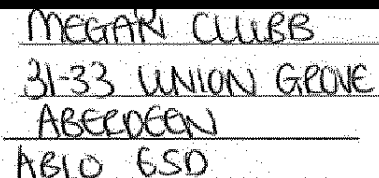 MEGAN CLUBB
31-33 UNION GROVE
ABERDEEN
AB10 6SD